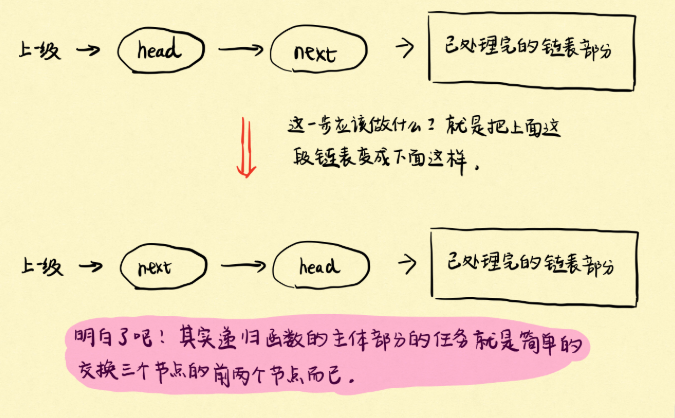 上级 → head → next → 已处理完的链表部分
这一步应该做什么？就是把上面这
段链表变成下面这样。
上级 → next → head → 已处理完的链表部分
明白了吧！其实递归函数的主体部分的任务就是简单的
交换三个节点的前两个节点而已。